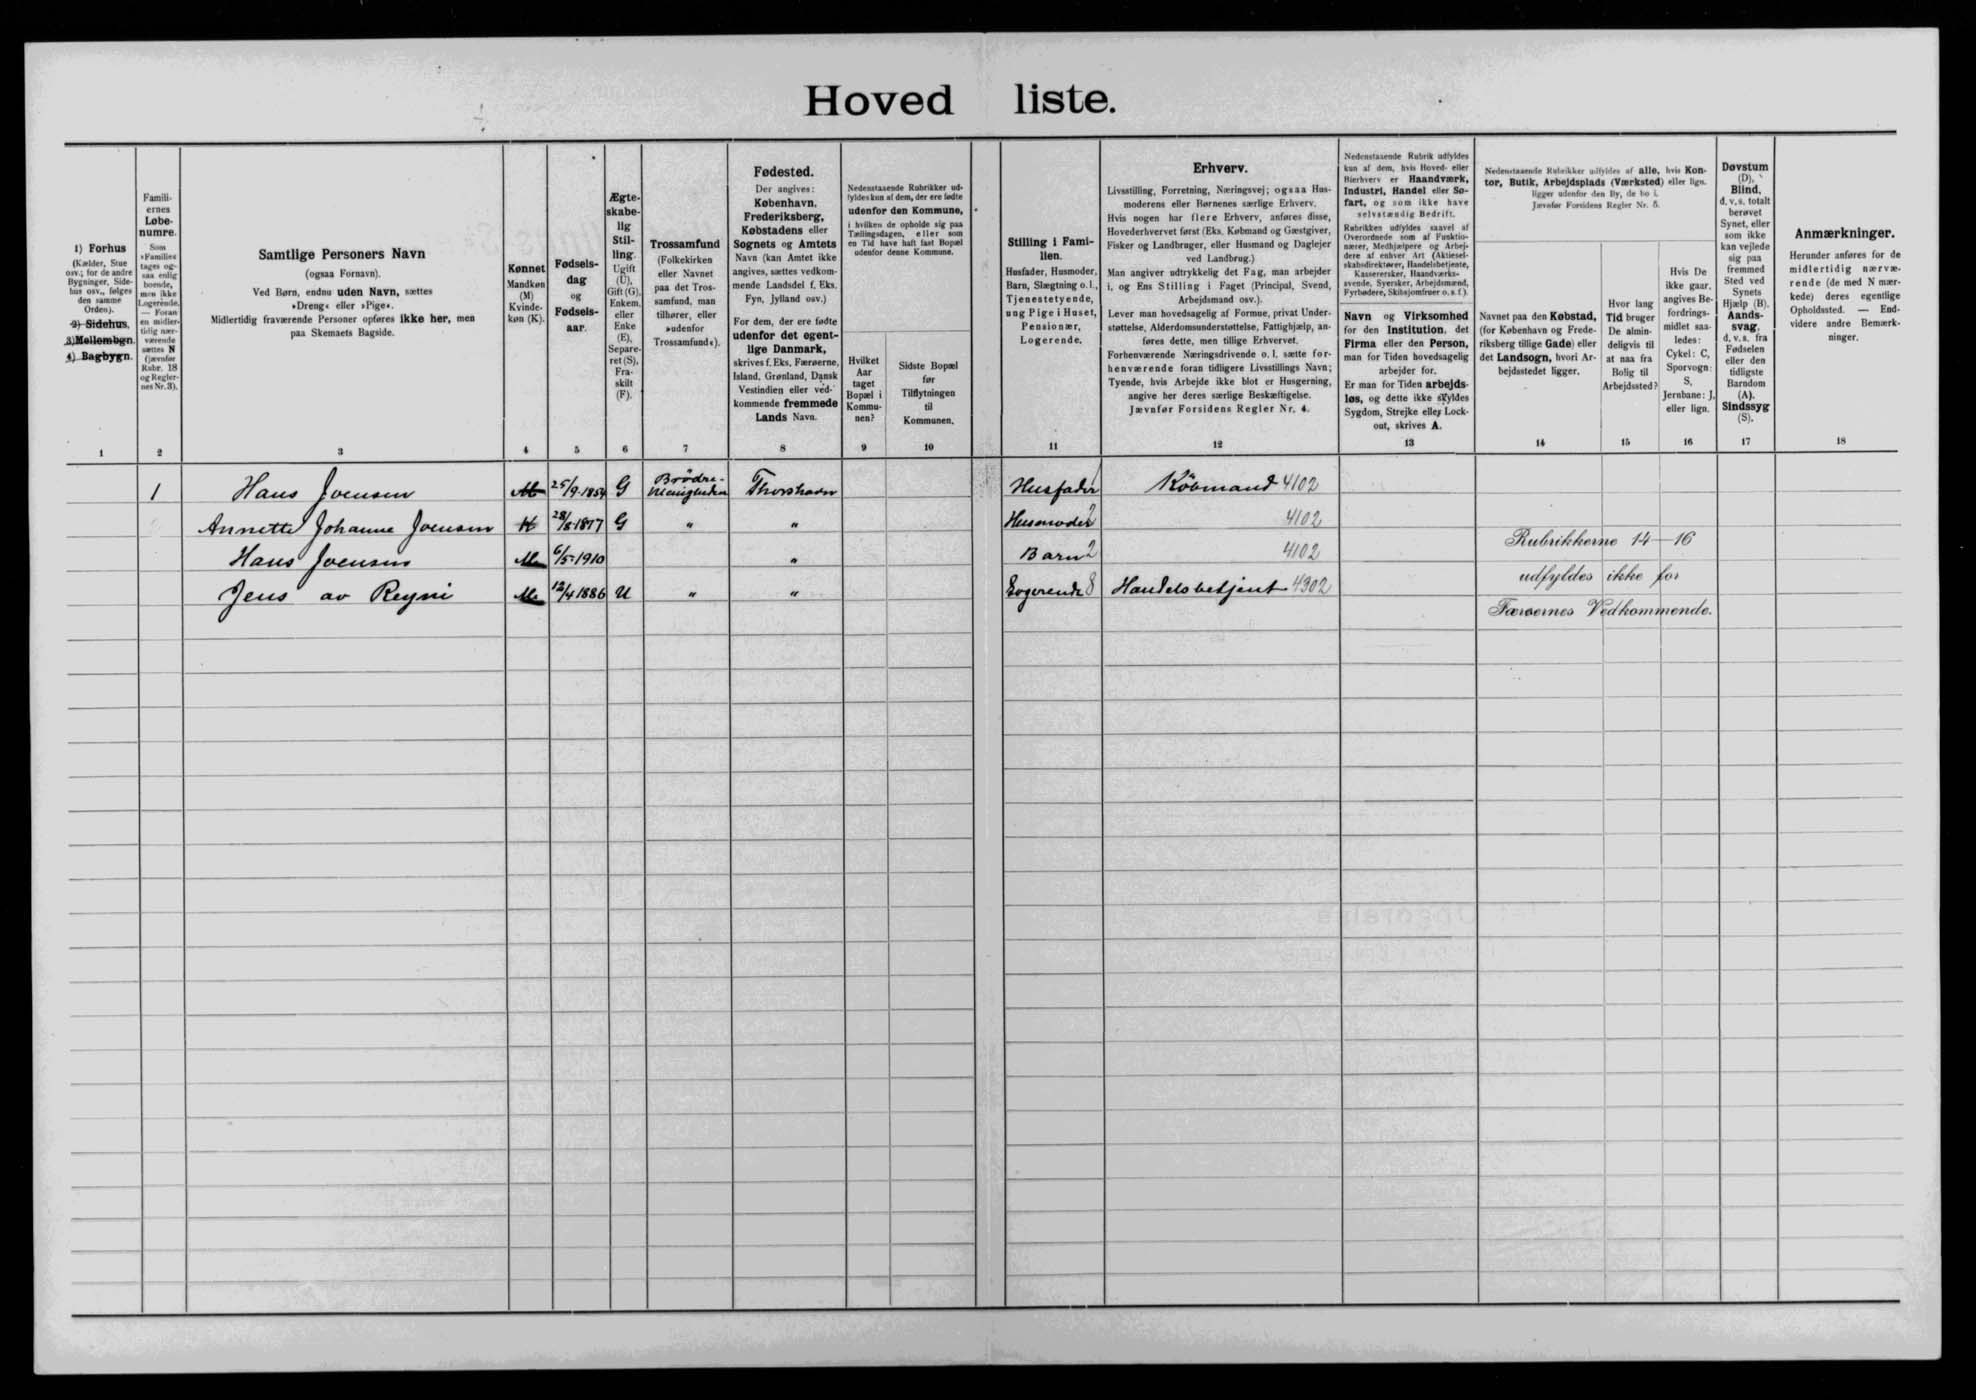 Hoved liste.
1) Forhus
(Kælder, Stue
osv.; for de andre
Bygninger, Side-
hus osv., følges
den samme
Orden).
2) Sidehus,
3) Mellembgn.
4) Bagbygn.
1
Famili-
ernes
Løbe-
numre.
Som
»Familie«
tages og-
saa enlig
boende,
men ikke
Logerende.
— Foran
en midler-
tidig nær-
værende
sættes N
(jævnfør
Rubr. 18
og Regler-
nes Nr. 3).
2
Samtlige Personers Navn
(ogsaa Fornavn).
Ved Børn, endnu uden Navn, sættes
»Dreng« eller »Pige«.
Midlertidig fraværende Personer opføres ikke her, men
paa Skemaets Bagside.
3
Kønnet
Mandkøn
(M)
Kvinde-
køn (K).
4
Fødsels-
dag
og
Fødsels-
aar.
5
Ægte-
skabe-
lig
Stil-
ling.
Ugift
(U),
Gift (G),
Enkem.
eller
Enke
(E),
Separe-
ret (S),
Fra-
skilt
(F).
6
Trossamfund
(Folkekirken
eller Navnet
paa det Tros-
samfund, man
tilhører, eller
»udenfor
Trossamfund«).
7
Fødested.
Der angives:
København,
Frederiksberg,
Købstadens eller
Sognets og Amtets
Navn (kan Amtet ikke
angives, sættes vedkom-
mende Landsdel f. Eks.
Fyn, Jylland osv.)
For dem, der ere fødte
udenfor det egent-
lige Danmark,
skrives f. Eks. Færøerne,
Island, Grønland, Dansk
Vestindien eller ved-
kommende fremmede
Lands Navn.
8
Nedenstaaende Rubrikker ud-
fyldes kun af dem, der ere fødte
udenfor den Kommune,
i hvilken de opholde sig paa
Tællingsdagen, eller som
en Tid have haft fast Bopæl
udenfor denne Kommune.
Hvilket
Aar
taget
Bopæl i
Kommu-
nen?
9
Sidste Bopæl
før
Tilflytningen
til
Kommunen.
10
Stilling i Fami-
lien.
Husfader, Husmoder,
Barn, Slægtning o. l.,
Tjenestetyende,
ung Pige i Huset,
Pensionær,
Logerende.
11
Erhverv.
Livsstilling, Forretning, Næringsvej; ogsaa Hus-
moderens eller Børnenes særlige Erhverv.
Hvis nogen har flere Erhverv, anføres disse,
Hovederhvervet først (Eks. Købmand og Gæstgiver,
Fisker og Landbruger, eller Husmand og Daglejer
ved Landbrug.)
Man angiver udtrykkelig det Fag, man arbejder
i, og Ens Stilling i Faget (Principal, Svend,
Arbejdsmand osv.).
Lever man hovedsagelig af Formue, privat Under-
støttelse, Alderdomsunderstøttelse, Fattighjælp, an-
føres dette, men tillige Erhvervet.
Forhenværende Næringsdrivende o. l. sætte for-
henværende foran tidligere Livsstillings Navn;
Tyende, hvis Arbejde ikke blot er Husgerning,
angive her deres særlige Beskæftigelse.
Jævnfør Forsidens Regler Nr. 4.
12
Nedenstaaende Rubrik udfyldes
kun af dem, hvis Hoved- eller
Bierhverv er Haandværk,
Industri, Handel eller Sø-
fart, og som ikke have
selvstændig Bedrift.
Rubrikken udfyldes saavel af
Overordnede som af Funktio-
nærer, Medhjælpere og Arbej-
dere af enhver Art (Aktiesel-
skabsdirektører, Handelsbetjente,
Kasserersker, Haandværks-
svende, Syersker, Arbejdsmænd,
Fyrbødere, Skibsjomfruer o. s. f.).
Navn og Virksomhed
for den Institution, det
Firma eller den Person,
man for Tiden hovedsagelig
arbejder for.
Er man for Tiden arbejds-
løs, og dette ikke skyldes
Sygdom, Strejke eller Lock-
out, skrives A.
13
Nedenstaaende Rubrikker udfyldes af alle, hvis Kon-
tor, Butik, Arbejdsplads (Værksted) eller lign.
ligger udenfor den By, de bo i.
Jævnfør Forsidens Regler Nr. 5.
Navnet paa den Købstad,
(for København og Frede-
riksberg tillige Gade) eller
det Landsogn, hvori Ar-
bejdsstedet ligger.
14
Hvor lang
Tid bruger
De almin-
deligvis til
at naa fra
Bolig til
Arbejdssted?
15
Hvis De
ikke gaar,
angives Be-
fordrings-
midlet saa-
ledes:
Cykel: C,
Sporvogn:
S,
Jernbane: J,
eller lign.
16
Døvstum
(D),
Blind,
d. v. s. totalt
berøvet
Synet, eller
som ikke
kan vejlede
sig paa
fremmed
Sted ved
Synets
Hjælp (B),
Aands-
svag,
d. v. s. fra
Fødselen
eller den
tidligste
Barndom
(A).
Sindssyg
(S).
17
Anmærkninger.
Herunder anføres for de
midlertidig nærvæ-
rende (de med N mær-
kede) deres egentlige
Opholdssted. — End-
videre andre Bemærk-
ninger.
18
1 Hans Joensen M 25/9-1854 G Brødre-menigheden Thorshavn Husfader 1 Købmand 4102
Annette Johanne Joensen K 28/8-1877 G " " Husmoder 2 4102
Hans Joensen M 6/5-1910 " Barn 2 4102
Jens av Reyni M 12/4 1886 U " " Logerende 8 Handelsbetjent 4302
Rubrikkerne 14—16
udfyldes ikke for
Færøernes Vedkommende.